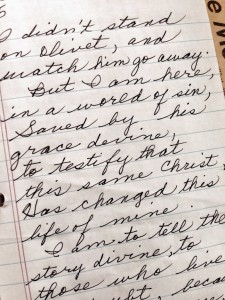 I didn't stand
on Olivet, and
watch him go away.
But I am here,
in a world of sin,
Saved by his
grace devine,
to testify that
this same Christ
Has changed this
life of mine.
I am to tell the
story divine, to
those who live